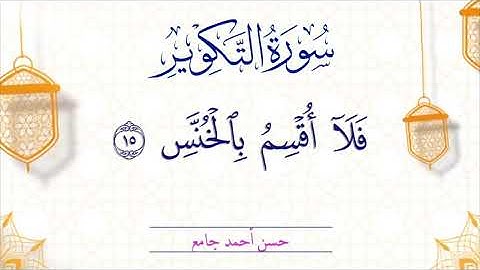 سُورَةُ التَّكْوِيرِ
فَلَآ أُقْسِمُ بِٱلْخُنَّسِ ١٥
حسن أحمد جامع